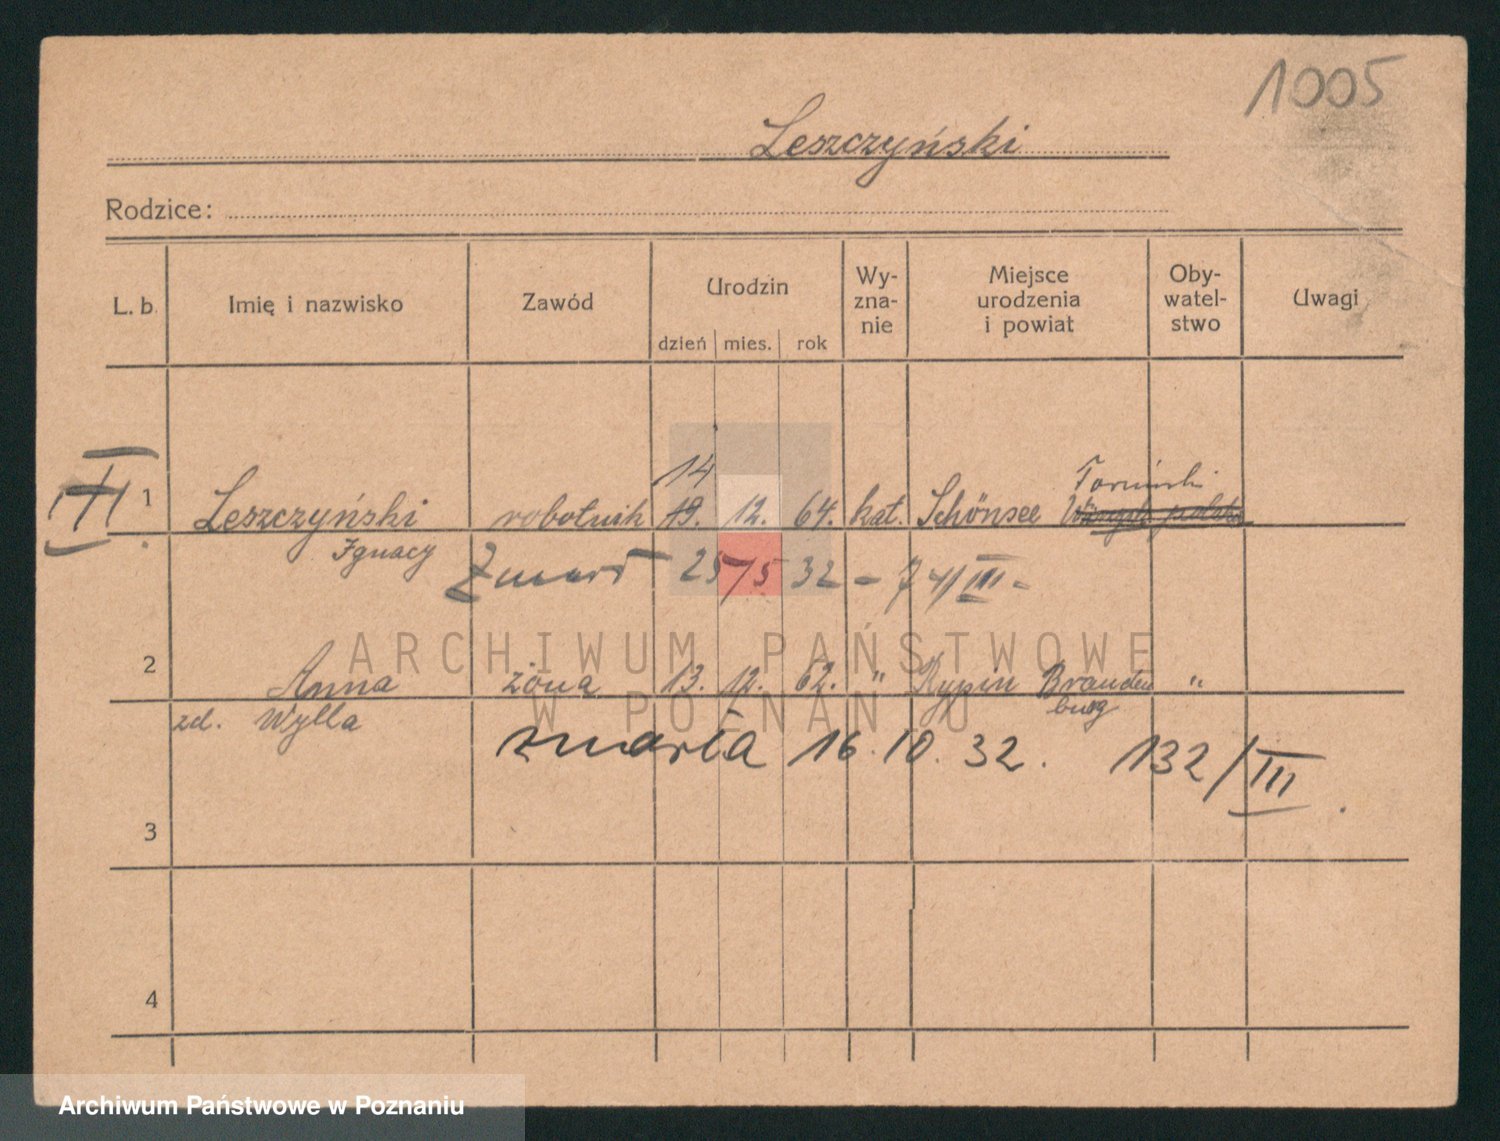 1005
Leszczyński
Rodzice:
L. b. Imię i nazwisko Zawód Urodzin dzień mies. rok Wy-zna-nie Miejsce urodzenia i powiat Oby-watel-stwo Uwagi
14 Toruński
III 1 Leszczyński robotnik 19. 12. 64. kat. Schönsee
Ignacy
Zmarł 25/5 32 - 74/III -
2 Anna żona 13. 12. 62. " Rypin Branden "
zd. Wylla burg
zmarła 16. 10. 32. 132/III.
3
4
ARCHIWUM PAŃSTWOWE
W POZNANIU
Archiwum Państwowe w Poznaniu